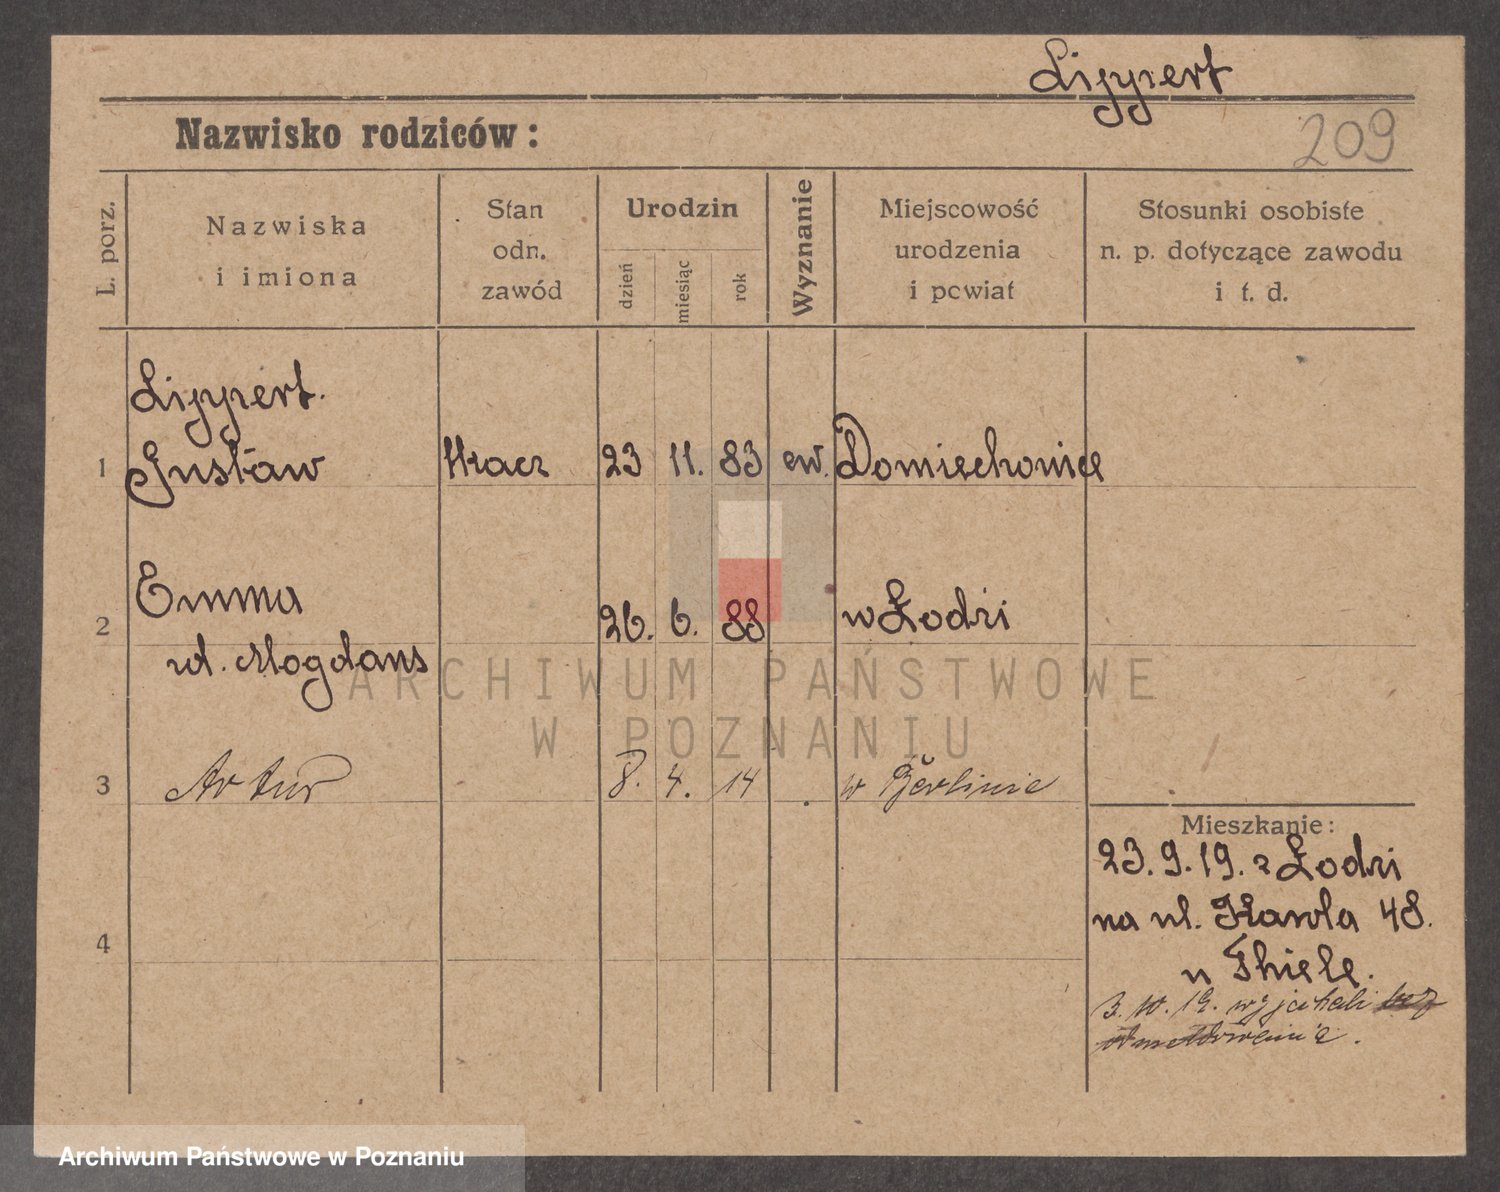 Lippert
Nazwisko rodziców:
209
L. porz.
Nazwiska
i imiona
Stan
odn.
zawód
Urodzin
dzień
miesiąc
rok
Wyznanie
Miejscowość
urodzenia
i powiat
Stosunki osobiste
n. p. dotyczące zawodu
i t. d.
Lippert.
1 Gustaw tkacz 23 11. 83 ew. Domiechowice
2 Emma 26. 6. 88 w Łodzi
ur. Mogdans
3 Artur 8. 4. 14 w Berlinie
4
Mieszkanie:
23.9.19. z Łodzi
na ul. Karola 48.
u Thiele.
3. 10. 19. wyjechali bez
odmeldowania.
ARCHIWUM PAŃSTWOWE
W POZNANIU
Archiwum Państwowe w Poznaniu